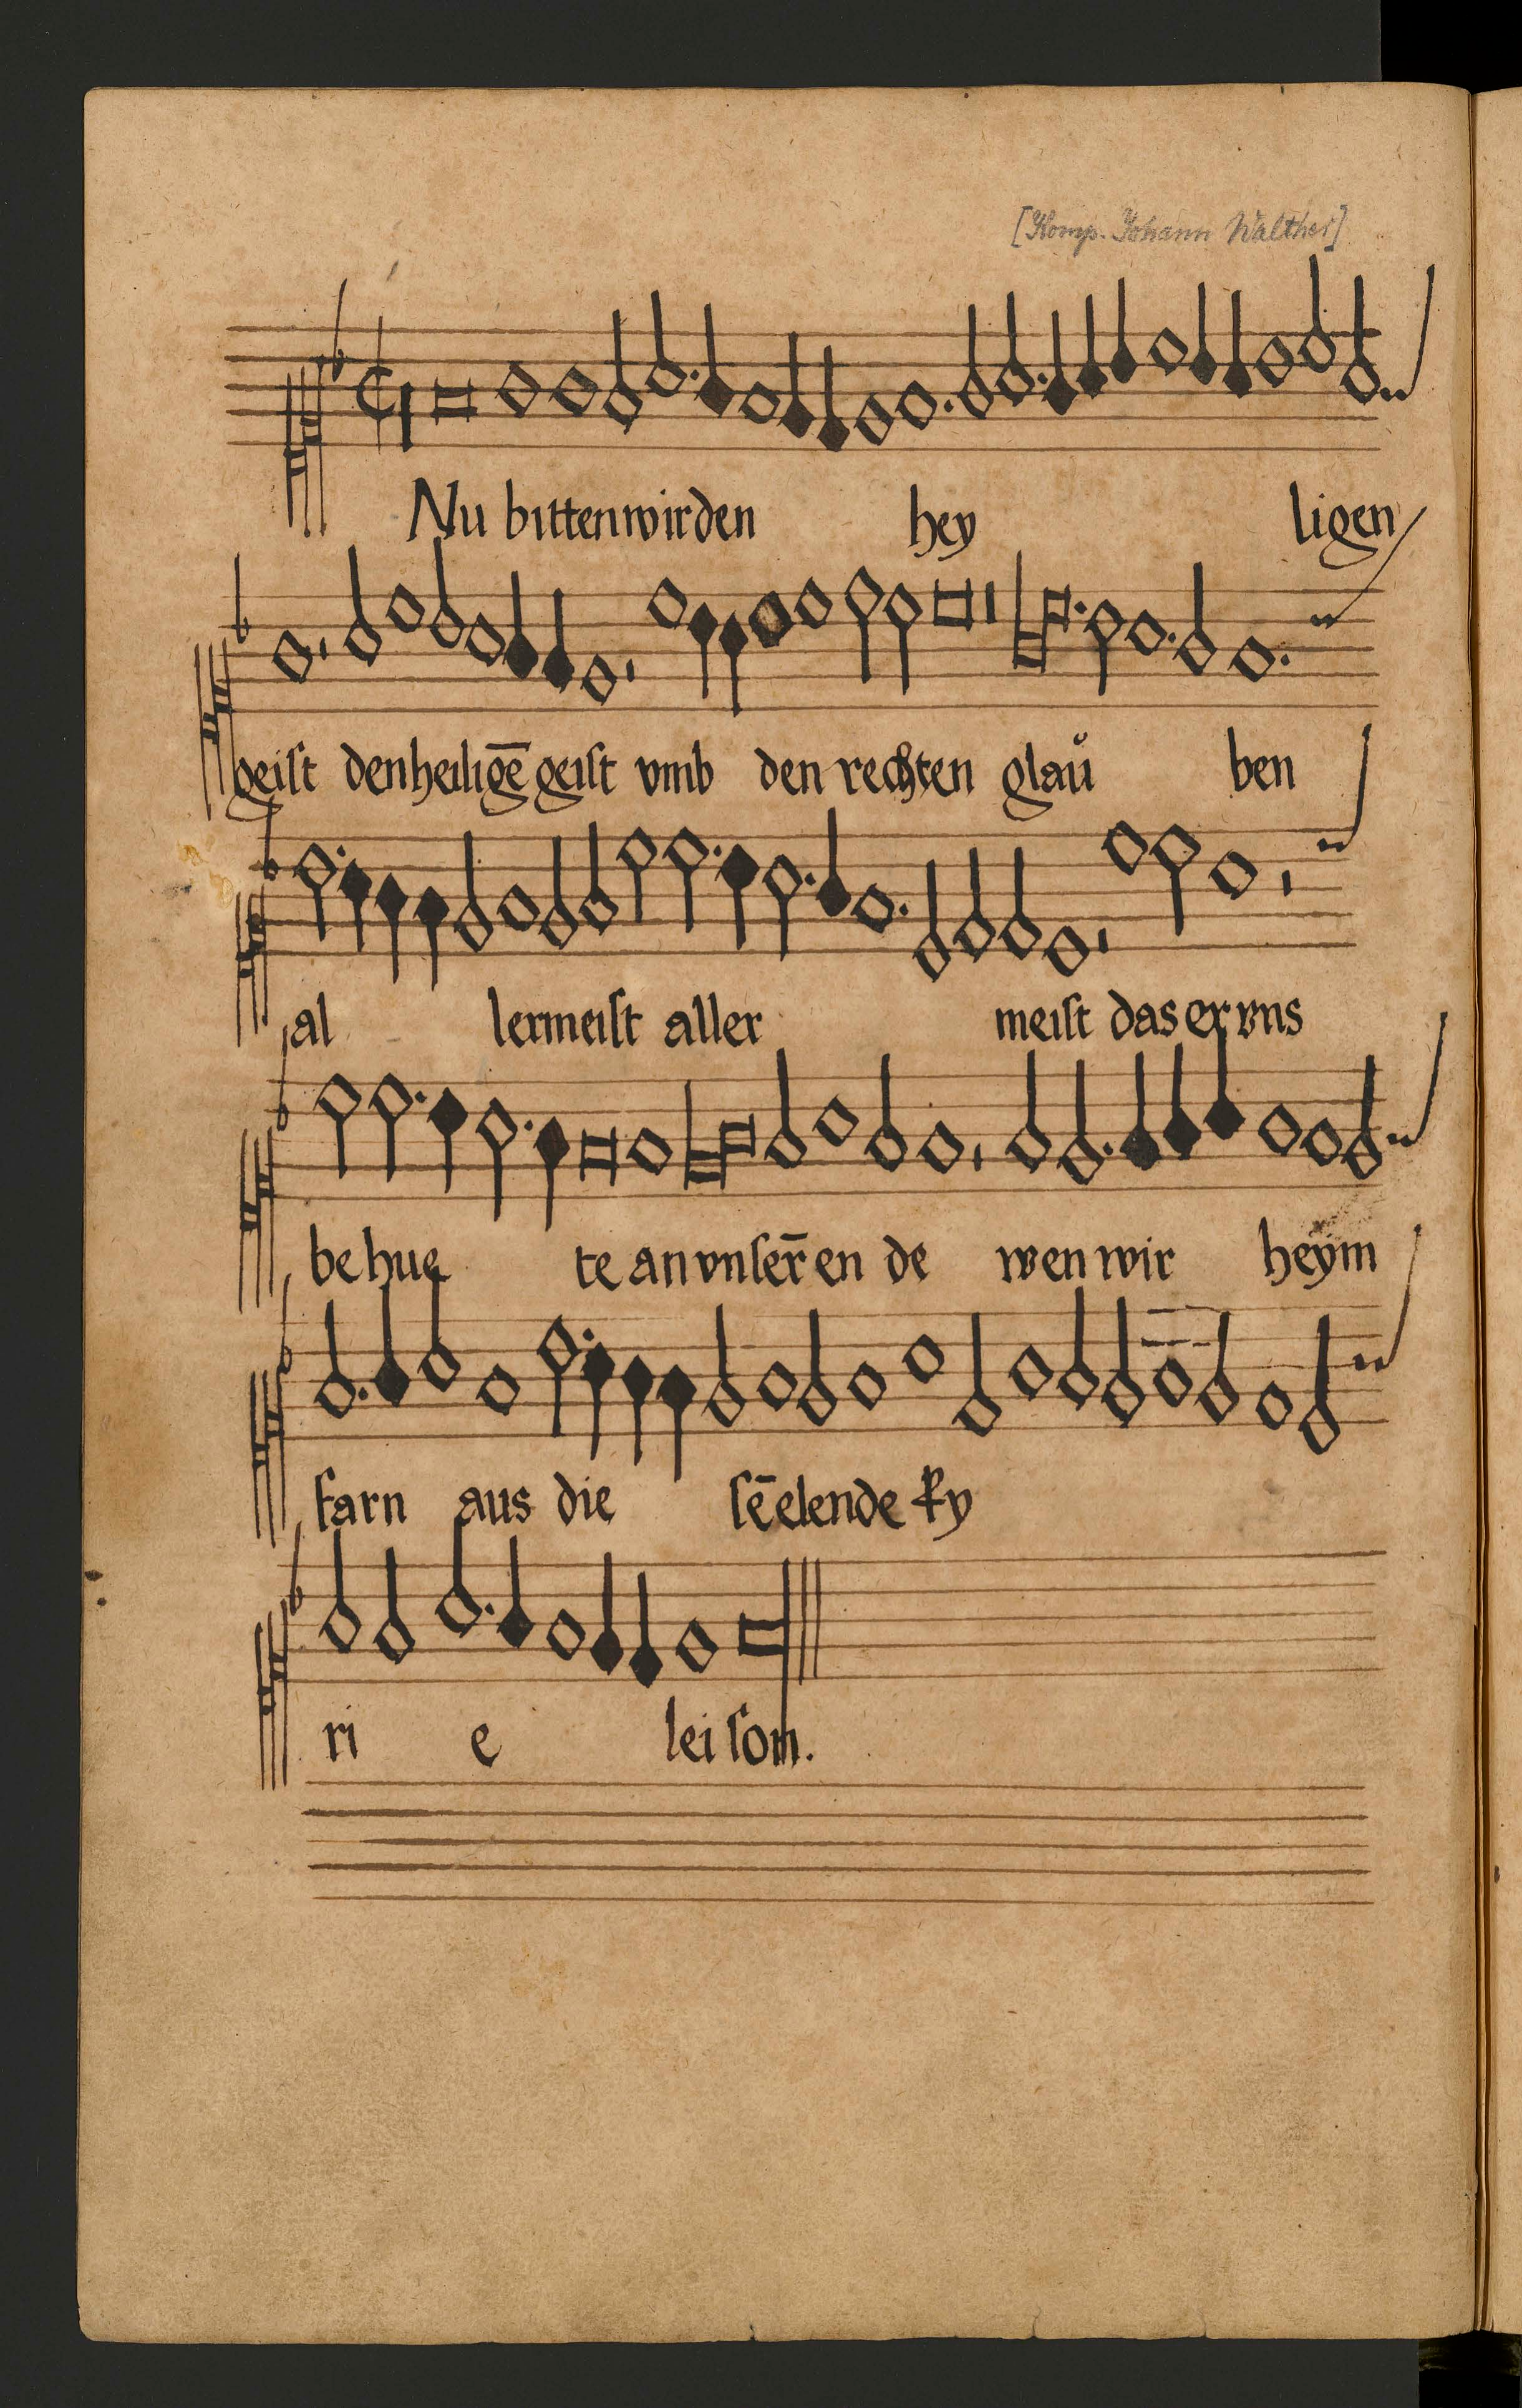 [Komp. Johann Walther]
Nu bitten wir den hey ligen
geiſt den heiligē geiſt vmb den rechten glaů ben
al lermeiſt aller meiſt das er vns
be hue te an vnſer̄ en de wen wir heym
farn aus die ſē elende ky
ri e lei ſon.